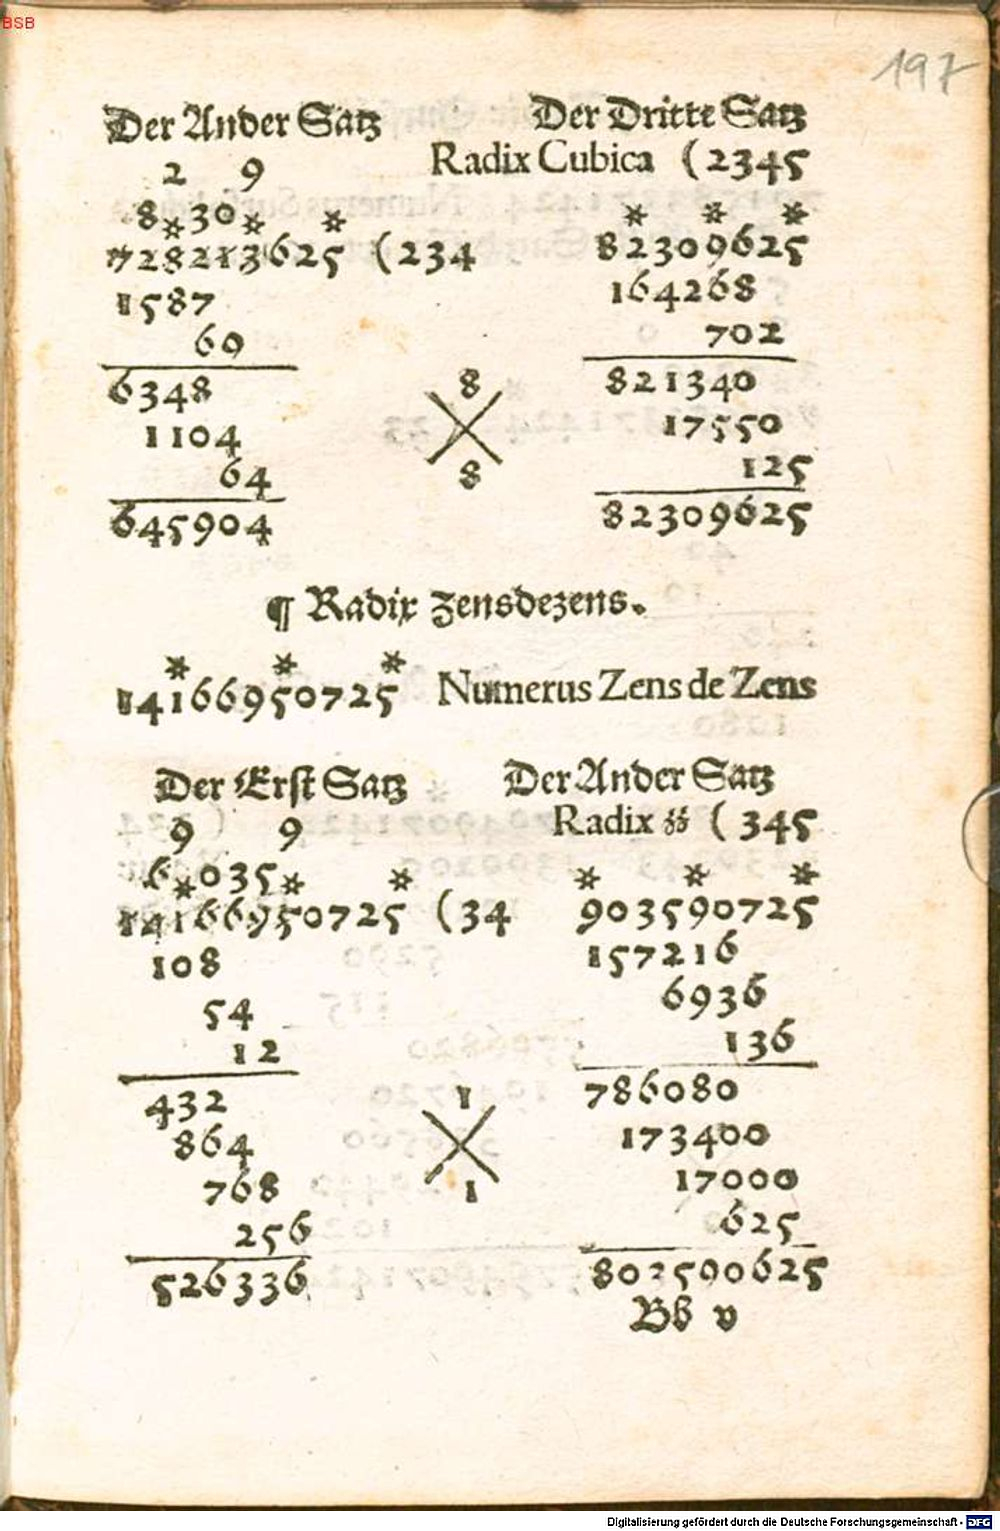 BSB
197
Der Ander Satz
2 9
8 * 30 * *
728213625 (234
1587
60
6348
1104
64
645904
8
8
Der Dritte Satz
Radix Cubica (2345
* * *
82309625
164268
702
821340
17550
125
82309625
¶ Radix zensdezens.
* * *
14166950725 Numerus Zens de Zens
Der Erst Satz
9 9
6 * 035 * *
14166950725 (34
108
54
12
432
864
768
256
526336
1
1
Der Ander Satz
Radix ʒʒ (345
* * *
903590725
157216
6936
136
786080
173400
17000
625
802590625
Bb v
Digitalisierung gefördert durch die Deutsche Forschungsgemeinschaft - DFG